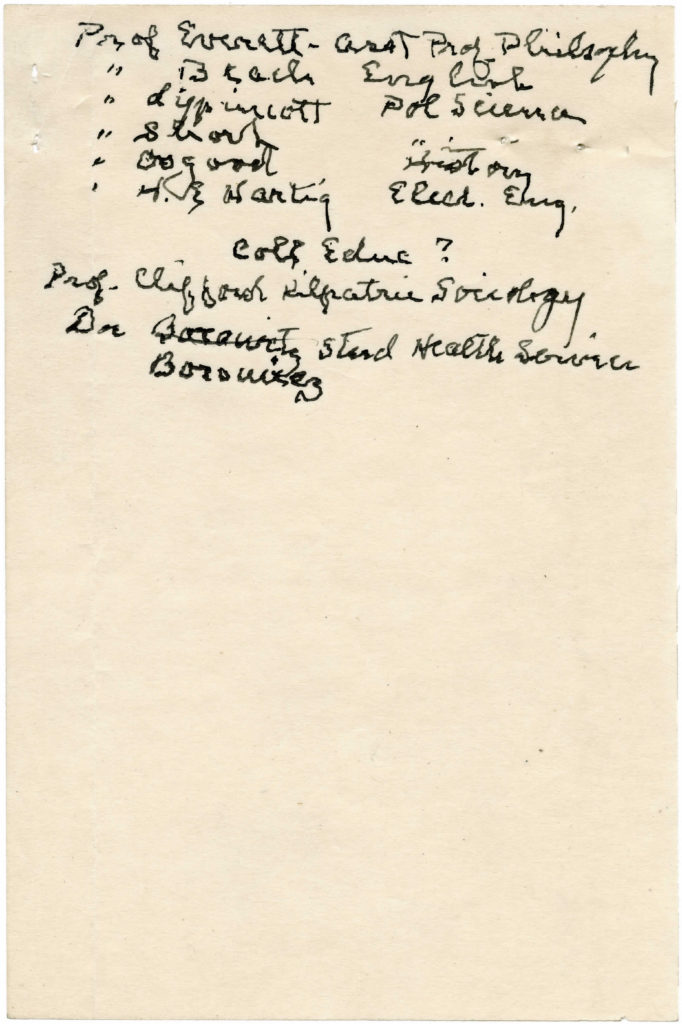 Prof Everett - asst Prof Philsophy
" Beach English
" Lippincott Pol Science
" Short "
" Osgood History
" H. E Hartig Elect. Eng.
Coll Educ ?
Prof. Clifford Kilpatric Sociology
Dr Borowitz Stud Health Service
Borowitz